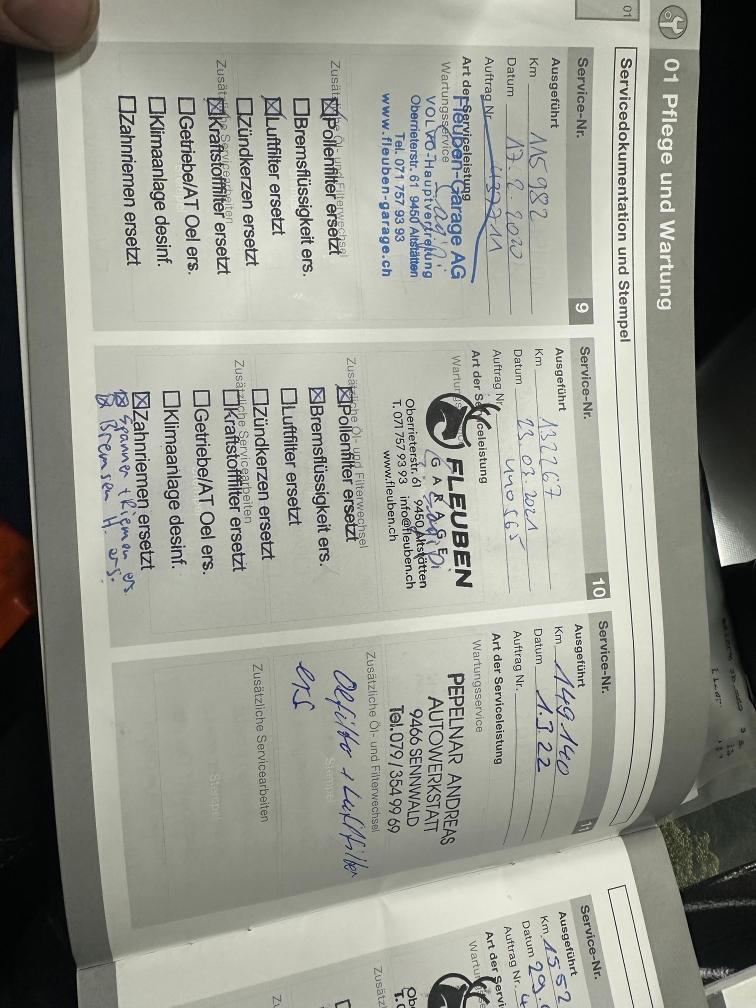 01
01 Pflege und Wartung
Servicedokumentation und Stempel
Service-Nr. 9
Ausgeführt
Km 115 982
Datum 17. 2. 2020
Auftrag Nr. 439711
Art der Serviceleistung
Wartungsservice
Fleuben-Garage AG
VOLVO-Hauptvertretung
Oberrieterstr. 61 9450 Altstätten
Tel. 071 757 93 93
www.fleuben-garage.ch
Zusätzliche Öl- und Filterwechsel
☒Pollenfilter ersetzt
☐Bremsflüssigkeit ers.
☒Luftfilter ersetzt
☐Zündkerzen ersetzt
Zusätzliche Servicearbeiten
☒Kraftstofffilter ersetzt
☐Getriebe/AT Oel ers.
☐Klimaanlage desinf.
☐Zahnriemen ersetzt
Service-Nr. 10
Ausgeführt
Km 132267
Datum 23.03.2021
Auftrag Nr. 440565
Art der Serviceleistung
Wartungs
FLEUBEN
GARAGE
Oberrieterstr. 61 9450 Altstätten
T. 071 757 93 93 info@fleuben.ch
www.fleuben.ch
Zusätzliche Öl- und Filterwechsel
☒Pollenfilter ersetzt
☒Bremsflüssigkeit ers.
☐Luftfilter ersetzt
☐Zündkerzen ersetzt
Zusätzliche Servicearbeiten
☐Kraftstofffilter ersetzt
☐Getriebe/AT Oel ers.
☐Klimaanlage desinf.
☒Zahnriemen ersetzt
☒ Spanner + Riemen ers
☒ Bremsen H. ers.
Service-Nr. 11
Ausgeführt
Km 149 140
Datum 1.3.22
Auftrag Nr.
Art der Serviceleistung
Wartungsservice
PEPELNAR ANDREAS
AUTOWERKSTATT
9466 SENNWALD
Tel. 079 / 354 99 69
Zusätzliche Öl- und Filterwechsel
Oelfilter + Luftfilter
ers
Stempel
Zusätzliche Servicearbeiten
Stempel
Service-Nr.
Ausgeführt
Km 1552
Datum 29.4
Auftrag Nr.
Art der Servi
Wartung
Obe
T. 0
Zusätz
Zu